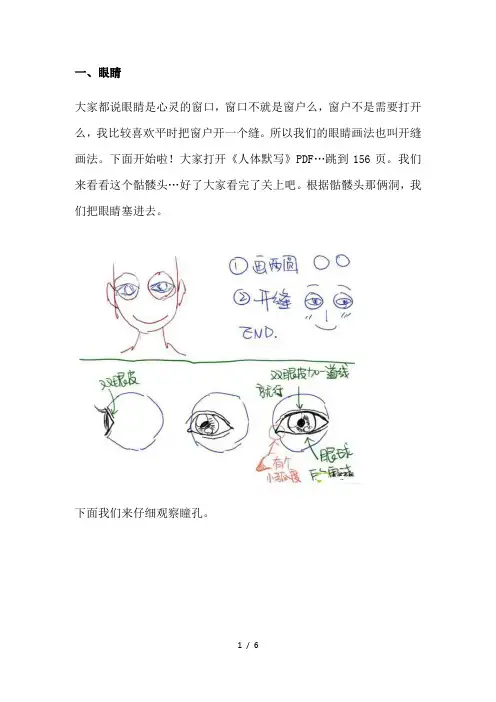 一、眼睛
大家都说眼睛是心灵的窗口，窗口不就是窗户么，窗户不是需要打开
么，我比较喜欢平时把窗户开一个缝。所以我们的眼睛画法也叫开缝
画法。下面开始啦！大家打开《人体默写》PDF…跳到156页。我们
来看看这个骷髅头…好了大家看完了关上吧。根据骷髅头那俩洞，我
们把眼睛塞进去。
①画两圆
②开缝
END.
双眼皮
双眼皮加一道线
就行
有个
小弧度
眼球
下面我们来仔细观察瞳孔。
1 / 6